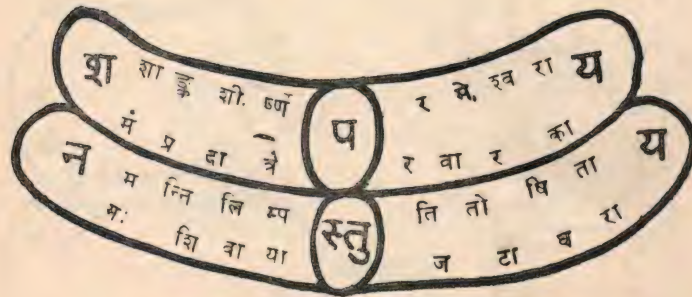 श शा ङ्क शी. र्ष्ण प र मे. श्व रा य
मं प्र दा त्रे र वा र का
न म न्नि लि म्प स्तु ति तो षि ता य
म: शि वा या ज टा ध रा